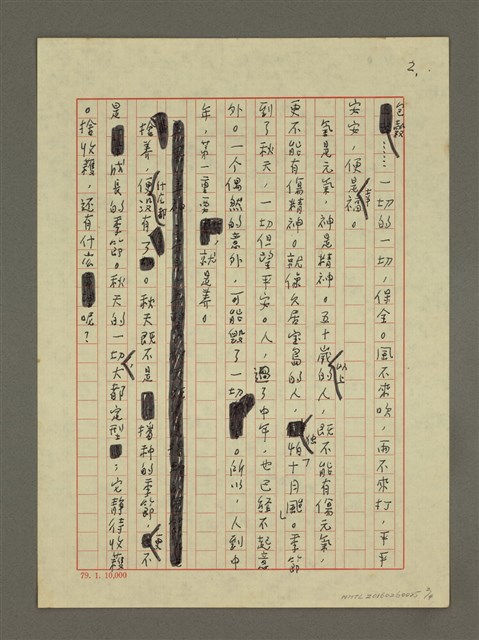 2.
包穀……一切的一切，保全。風不來吹，雨不來打，平平
安安，便是幸福。
氣是元氣，神是精神。五十歲以上的人，既不能有傷元氣，
更不能有傷精神。就像久居寶島的人，獨怕「十月颱」。季節
到了秋天，一切但望平安。人，過了中年，也已經不起意
外。一个偶然的意外，可能毀了一切。所以，人到中
年，第一重要，就是養。
捨養，便什么都沒有了。秋天既不是播種的季節，更不
是成長的季節。秋天的一切，大都定型；完靜待收穫
。捨收穫，还有什么呢？
79. 1. 10,000
NMTL20060260005 2/4